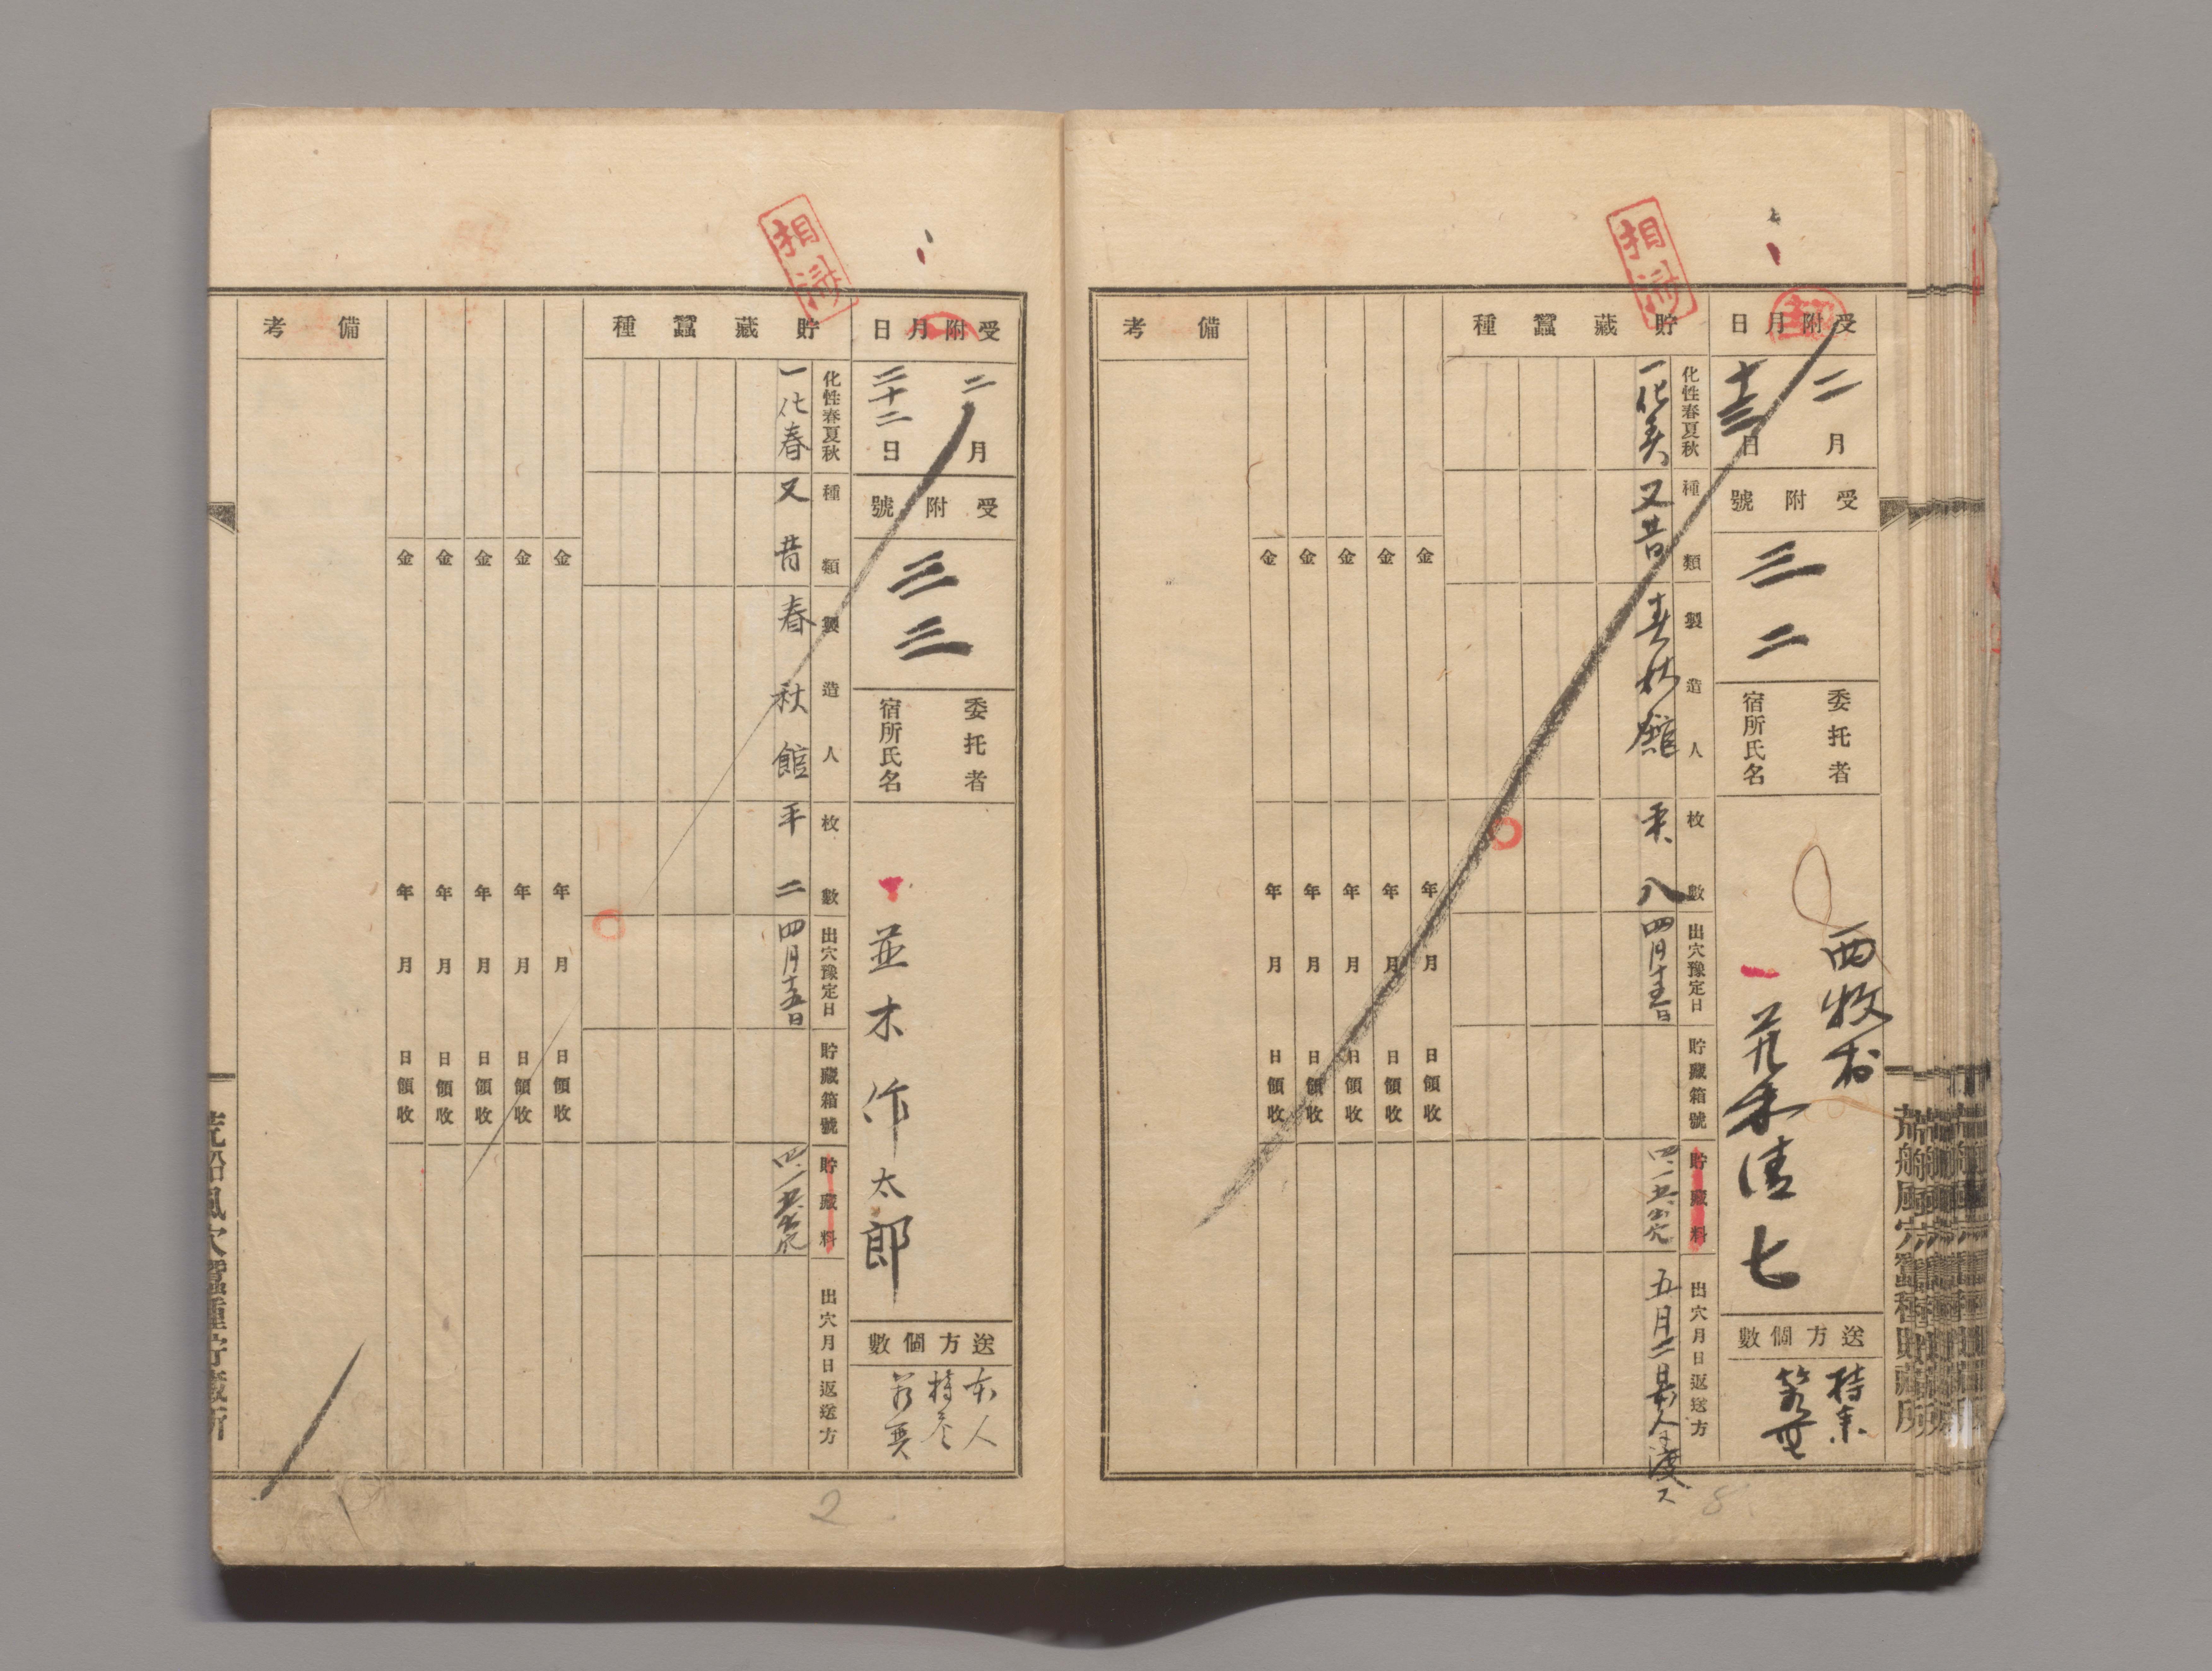 相済
受附月日
二月
十三日
受附號
三二
委托者
宿所氏名
西牧村
清七
送方個數
持参
貯藏蠶種
化性春夏秋
一化春
種類
又昔
製造人
春秋館
枚數
八
出穴豫定日
四月十五日
貯藏箱號
貯藏料
出穴月日返送方
五月二日本人渡ス
金 年 月 日領收
金 年 月 日領收
金 年 月 日領收
金 年 月 日領收
金 年 月 日領收
備考
8
荒船風穴蠶種貯藏所
相済
受附月日
二月
二十二日
受附號
三三
委托者
宿所氏名
並木作太郎
送方個數
本人
持参
貯藏蠶種
化性春夏秋
一化春
種類
又昔
製造人
春秋館
枚數
平二
出穴豫定日
四月十五日
貯藏箱號
貯藏料
出穴月日返送方
金 年 月 日領收
金 年 月 日領收
金 年 月 日領收
金 年 月 日領收
金 年 月 日領收
備考
2
荒船風穴蠶種貯藏所